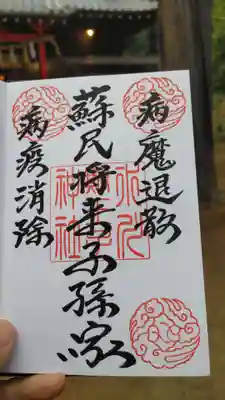 病魔退散
蘇民将来子孫家
病疫消除
氷川
神社